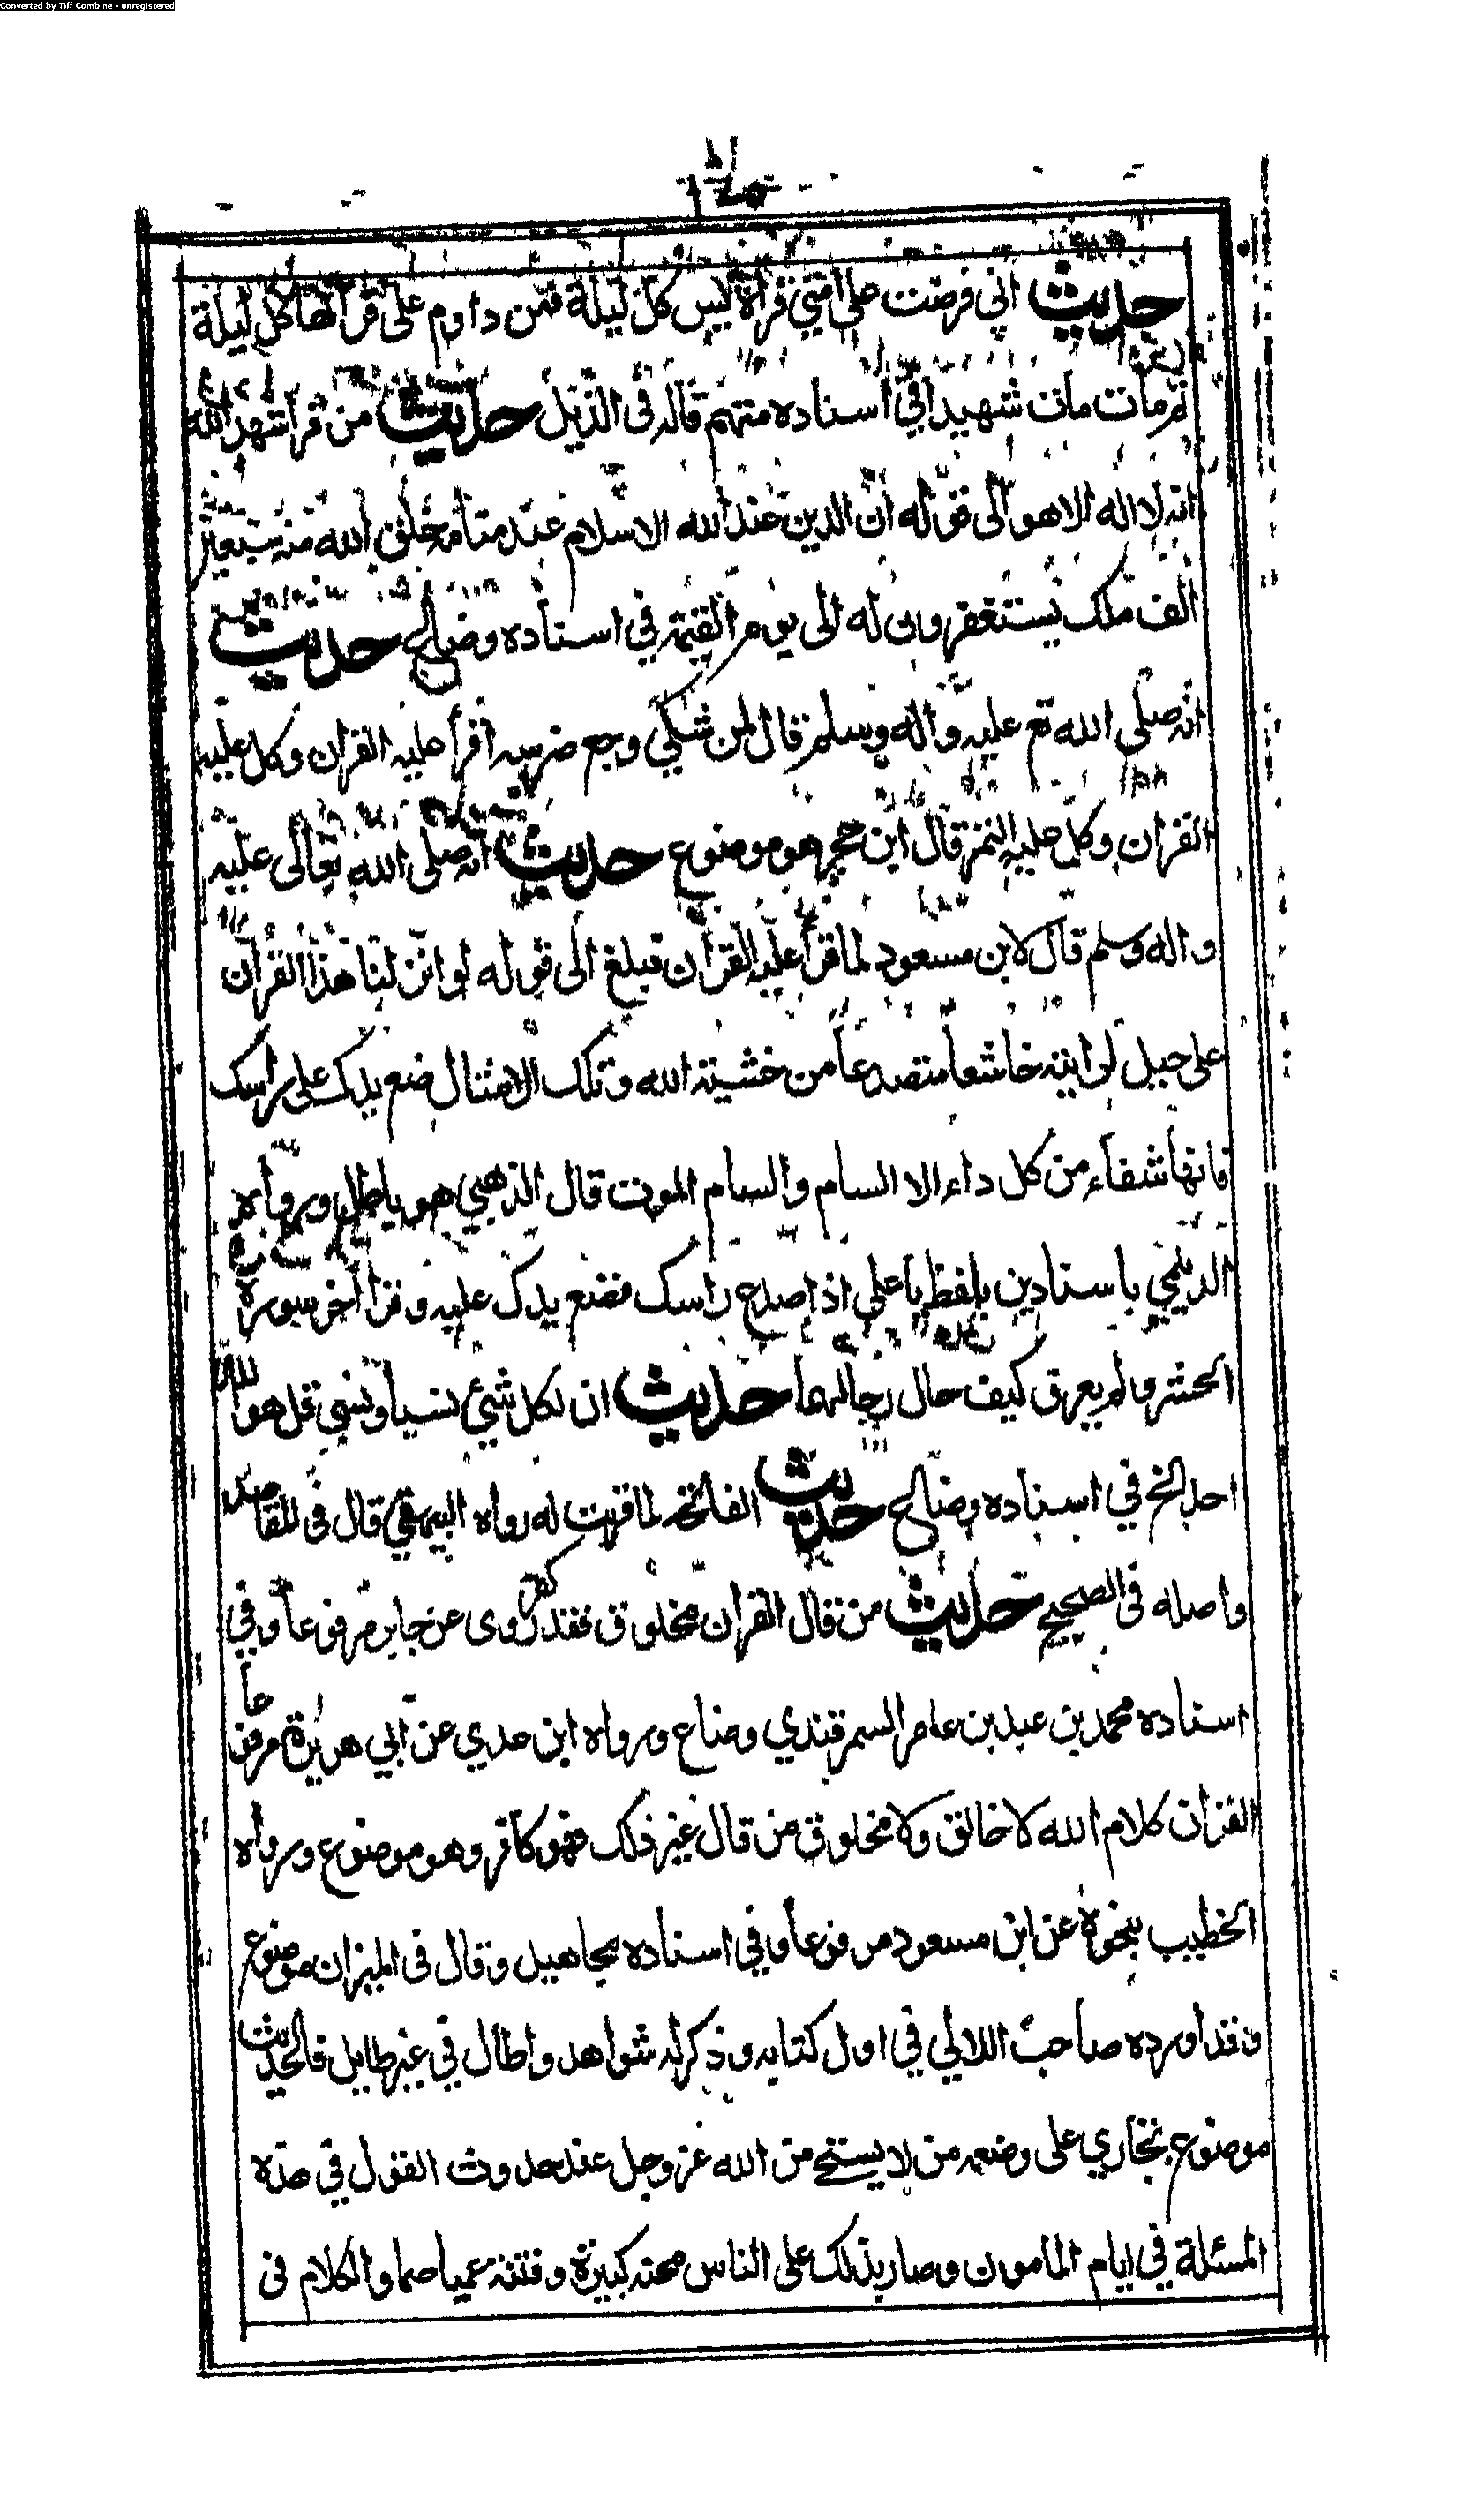 Converted by Tiff Combine - unregistered
١٤٥
حديث اني فرضت على امتي قراة يس كل ليلة فمن داوم على قرآتها كل ليلة
ثم مات مات شهيدا في اسناده متهم قاله في الذيل حديث من قرأ شهد الله
انه لا اله الا هو الى قوله ان الدين عند الله الاسلام عند منامه خلق الله منه سبعين
الف ملك يستغفرون له الى يوم القيمة في اسناده وضاع حديث
انه صلى الله تع عليه وآله وسلم قال لمن شكى وجع ضرسه اقرأ عليه القران وكل عليه
القران وكل عليه التمر قال ابن حجر هو موضوع حديث انه صلى الله تعالى عليه
واله وسلم قال لابن مسعود لما قرأ عليه القرآن فبلغ الى قوله لو انزلنا هذا القرآن
على جبل لرايته خاشعا متصدعا من خشية الله وتلك الامثال ضع يدك على راسك
فانها شفاء من كل داء الا السام والسام الموت قال الذهبي هو باطل ورواه
الديلمي باسنادين بلفظ يا علي اذا صدع راسك فضع يدك عليه وقرا آخر سورة
الحشر ولم يعرف كيف حال رجالهما حديث ان لكل شئ نسبا ونسبي قل هو الله
احد الخ في اسناده وضاع حديث الفاتحة لما قرئت له رواه البيهقي قال في المقاصد
واصله في الصحيح حديث من قال القران مخلوق فقد كفر روى عن جابر مرفوعا وفي
اسناده محمد بن عبد بن عامر السمرقندي وضاع ورواه ابن عدي عن ابي هريرة مرفوعا
القران كلام الله لا خالق ولا مخلوق من قال غير ذلك فهو كافر وهو موضوع ورواه
الخطيب بنحوه عن ابن مسعود مرفوعا وفي اسناده مجاهيل وقال في الميزان موضوع
وقد اورده صاحب اللالي في اول كتابه وذكر له شواهد واطال في غير طايل فالحديث
موضوع تجاري على وضعه من لا يستحي من الله عز وجل عند حدوث القول في هذه
المسئلة في ايام المامون وصار بذلك على الناس محنة كبيرة وفتنة عميا صما والكلام في